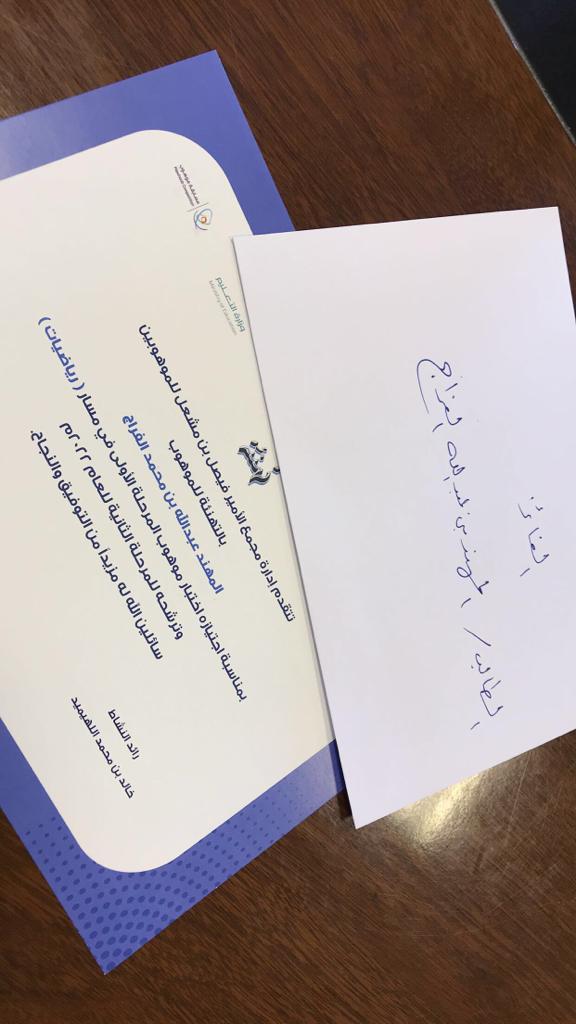 مسابقة موهوب
Mawhoob Competition
وزارة التعليم
Ministry of Education
تتقدم إدارة مجمع الأمير فيصل بن مشعل للموهوبين
بالتهنئة للموهوب
المهند عبدالله بن محمد الفراج
بمناسبة اجتيازه اختبار موهوب المرحلة الأولى في مسار ( رياضيات )
وترشحه للمرحلة الثانية للعام ٢٠٢٢م
سائلين الله له مزيداً من التوفيق والنجاح.
رائد النشاط
خالد بن محمد اللهيميد
الفائز:
الطالب / المهند بن عبد الله الفراج